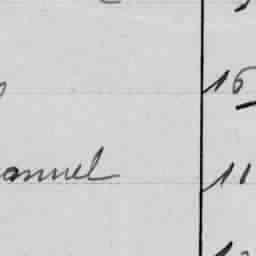 16
anuel 11